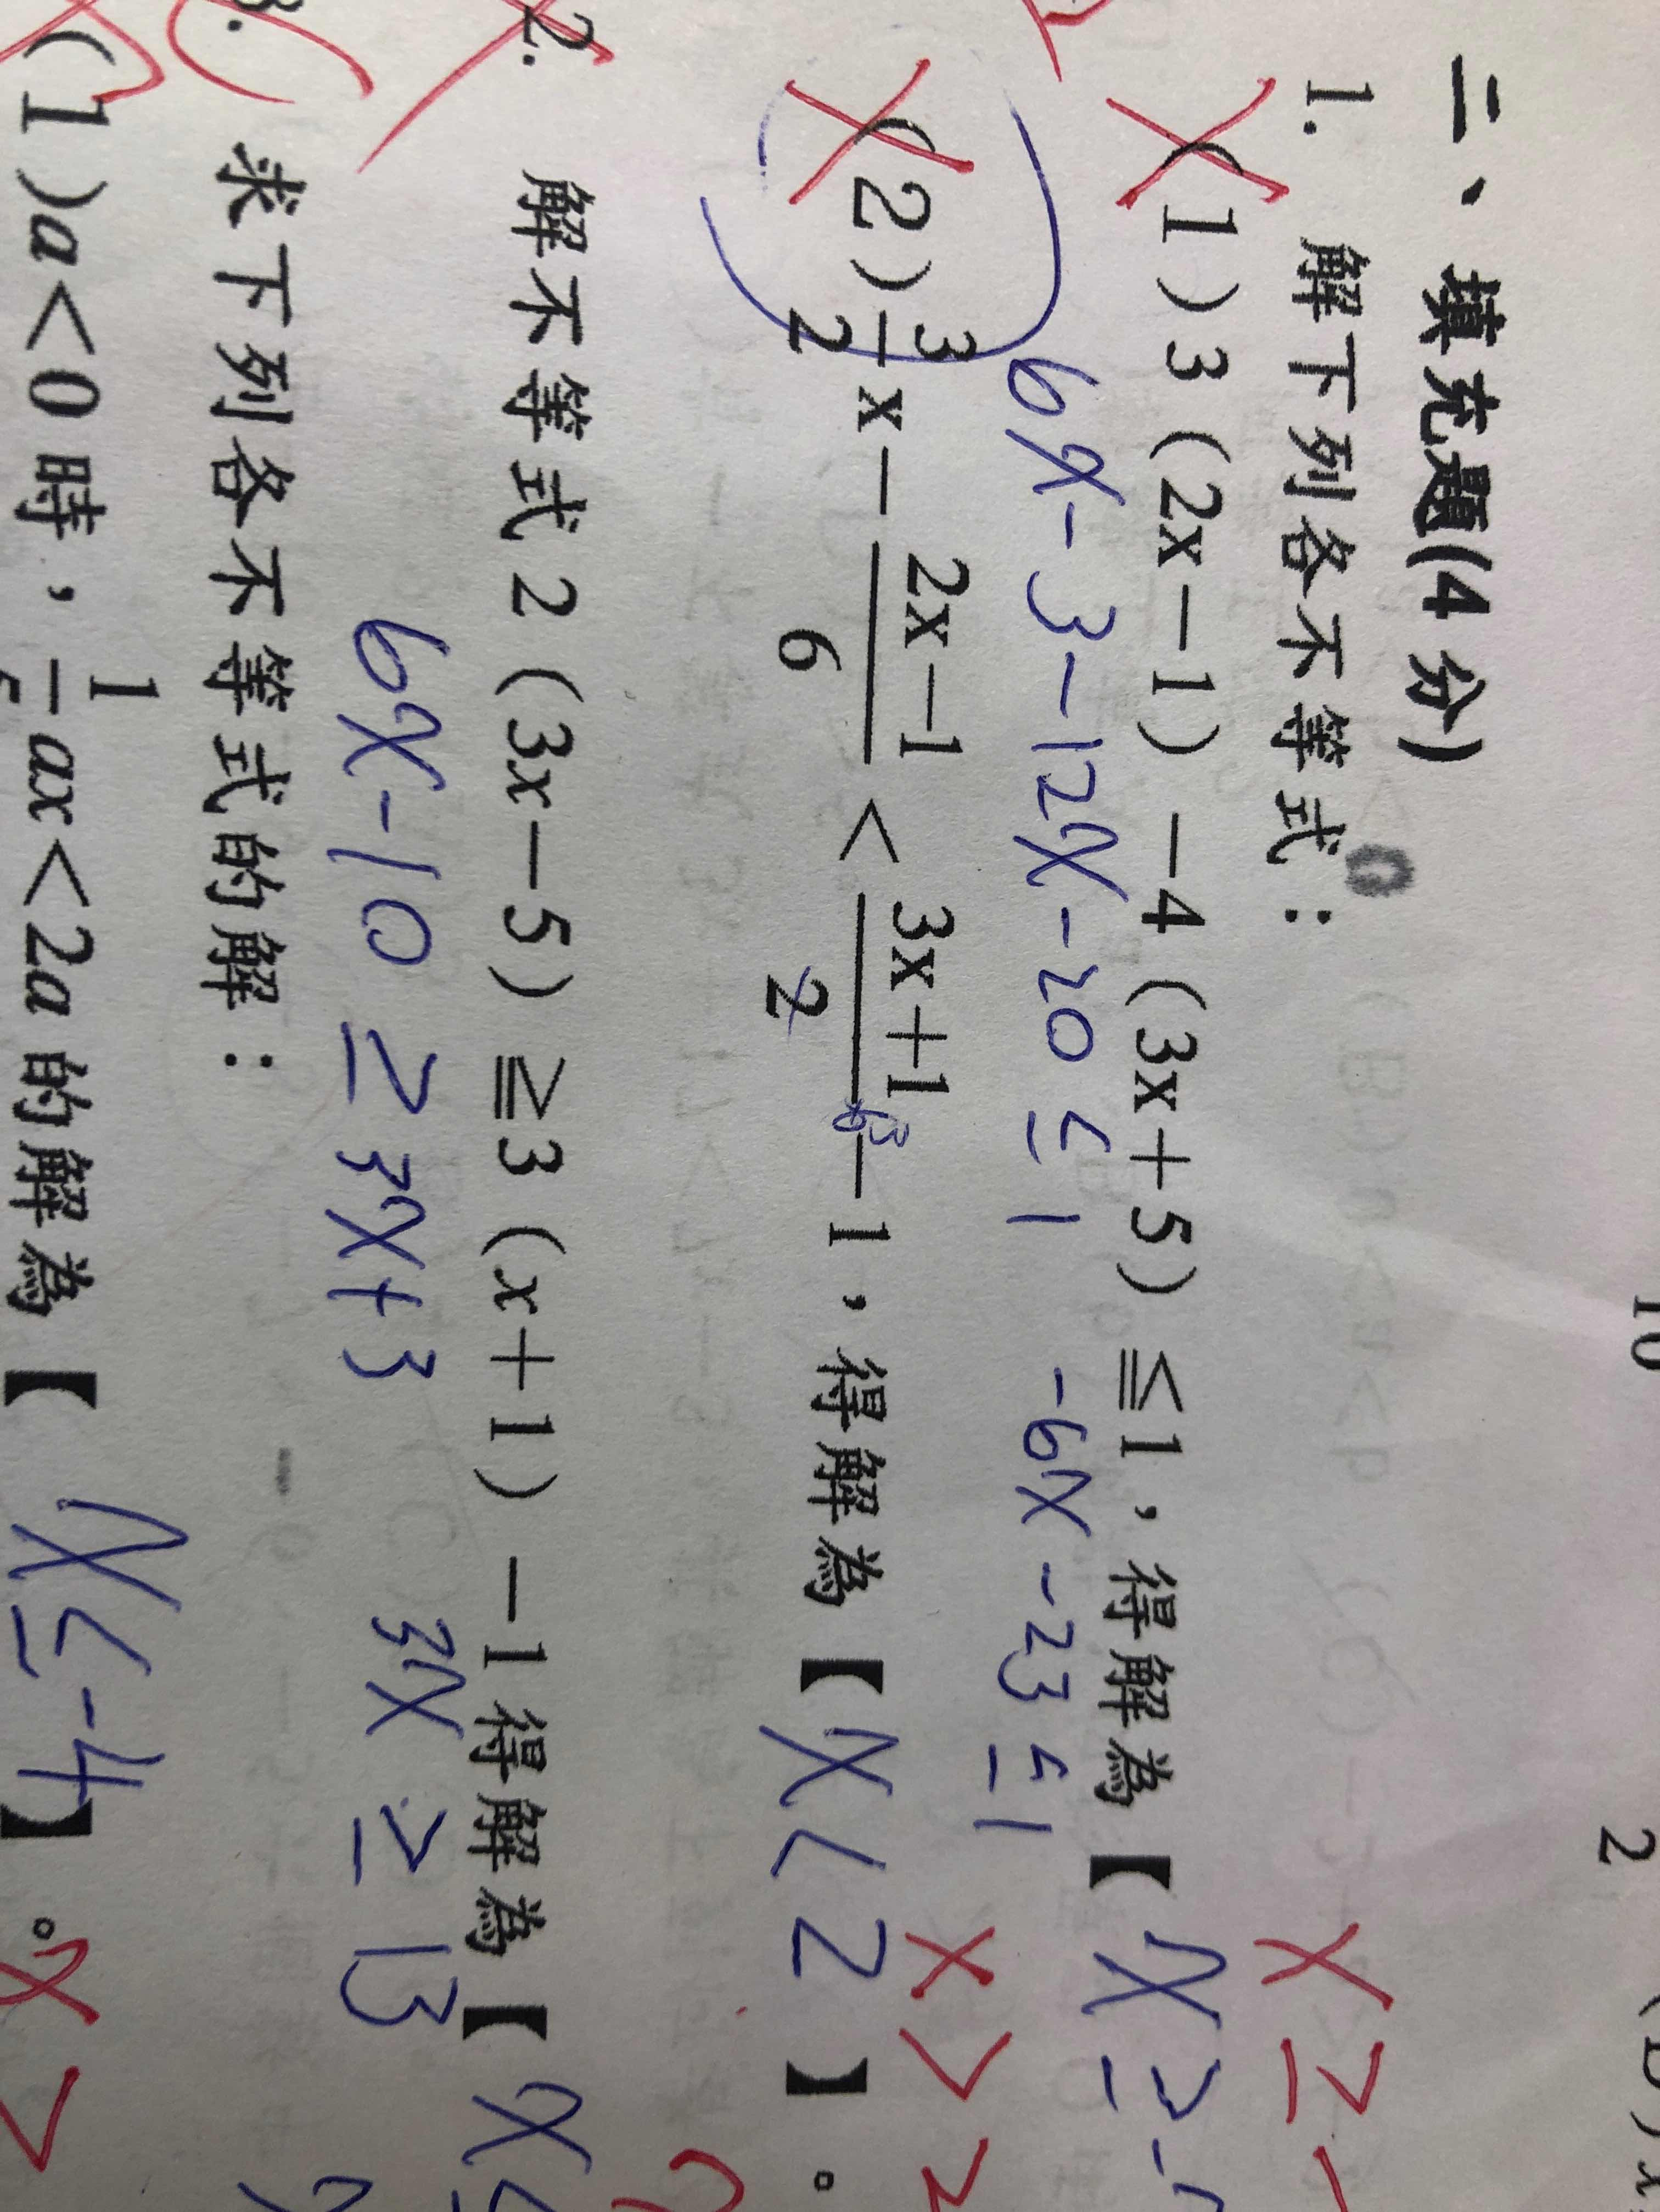 10
2
二、填充題(4分)
1. 解下列各不等式:
(1) 3(2x-1) -4(3x+5) ≦1,得解為【 x≥-
x≥-
6x-3-12x-20≤1 -6x-23≤1
(2) 3/2 x - (2x-1)/6 < (3x+1)/2 - 1,得解為【 x<2 】。
x>2
2. 解不等式2(3x-5) ≧3(x+1) -1得解為【 x
6x-10≥3x+3 3x≥13
3. 求下列各不等式的解:
(1) a<0時, ax<2a的解為【 x≤-4 】。
x>